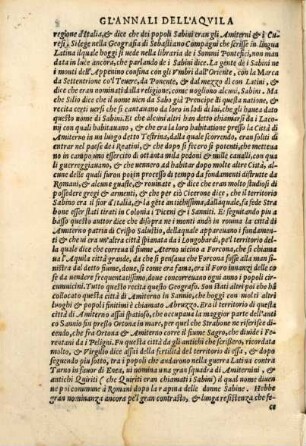 GL'ANNALI DELL'AQVILA
regione d'Italia, & dice che dei popoli Sabini eran gli Amiterni & i Cu-
resi; Silege nella Geografia di Sebastiano Compagni che scrisse in lingua
Latina il quale hoggi si uede nella libraria de i Sommi Pontefici, non man
data in luce ancora, che parlando de i Sabini dice. La gente de i Sabini ne
i monti dell'Appenino confina con gli Vmbri dall'Oriente, con la Marca
da Settentrione col Teuere, da Ponente, & dal mezzo dì con i Latini, chia
mati così dal culto della religione, come uogliono alcuni, Sabini. Ma
che Silio dice che il nomen uien da Sabo già Principe di questa natione, &
recita certi uersi che si cantauano da loro in laudi di lui, che gli hauea dato
questo nome di Sabini. Et che alcuni altri han detto chiamarsi da i Laco-
ni con quali habitarono, & che era la loro habitatione presso la Città di
Amiterno in un luogo detto Testrina, dalla quale scorrendo, eran soliti d'
entrar nel paese de i Reatini, & che dopo si fecero sì potenti, che metteua
no in campo uno essercito di ottanta mila pedoni & mille caualli, con qua
li guerreggiauano, & che uennero ad habitar dopo molte altre Città, al-
cune delle quali furon poi in processo di tempo da fondamenti distrutte da
Romani, & alcune guaste & rouinate, & dice che eran molto studiosi di
possedere gregi & armenti, & che per ciò Cicerone dice, che il territorio
Sabino era il fior d'Italia, & la gète antichissima, dalla quale, fa fede Stra
bone esser stati tirati in Colonia i Piceni & i Sanniti. Et seguendo più a
basso questo auttor dice d'esserui tra i monti andò in rouina la città di
Amiterno patria di Crispo Salustio, della quale appaiono i fondamenti
& che iui era un'altra città spianata da i Longobardi, per'l territorio del-
la quale dice che correa il fiume, Aterno uicino a Forcona, che si chiama
ua l'Aquila città grande, da che si pensaua che Forcona fusse alla man si-
nistra dal detto fiume, doue, si come era fama, era il Foro innanzi delle co
se da uendere frequentatissimo, doue concorreuano ogni anno i popoli cir-
cumuicini. Tutto questo recita questo Geografo. Son stati altri poi che ha
collocato questa città di Amiterno in Sannio, che hoggi con molti altri
luoghi & popoli finitimi è chiamato Abruzzo. Era il territorio di questa
città di Amiterno assai spatioso, che occupaua la maggior parte dell'anti
co Sannio fin presso Ortona in mare, per quel che Strabone ne riferisce di-
cendo, che fra Ortona & Amiterno corre il fiume Sagro, che diuide i Fre
ntani da i Peligni. Fu questa città da gli antichi che scrissero, ricordata
molto, & Virgilio dice assai della feridità del territorio di essa, & dopo
seguendo più sotto, tra i popoli che andarono nella guerra Latina contra
Turno in fauor di Enea, ui nomina una gran squadra di Amiternini, &
antichi Quiriti (che Quiriti eran chiamati i Sabini) il qual nome diuen
ne poi commune à Romani dopo la rapina delle donne Sabine. Hebbe
gran nominanza ancora pe'l gran contrasto, & lunga resistenza che fe-
ce